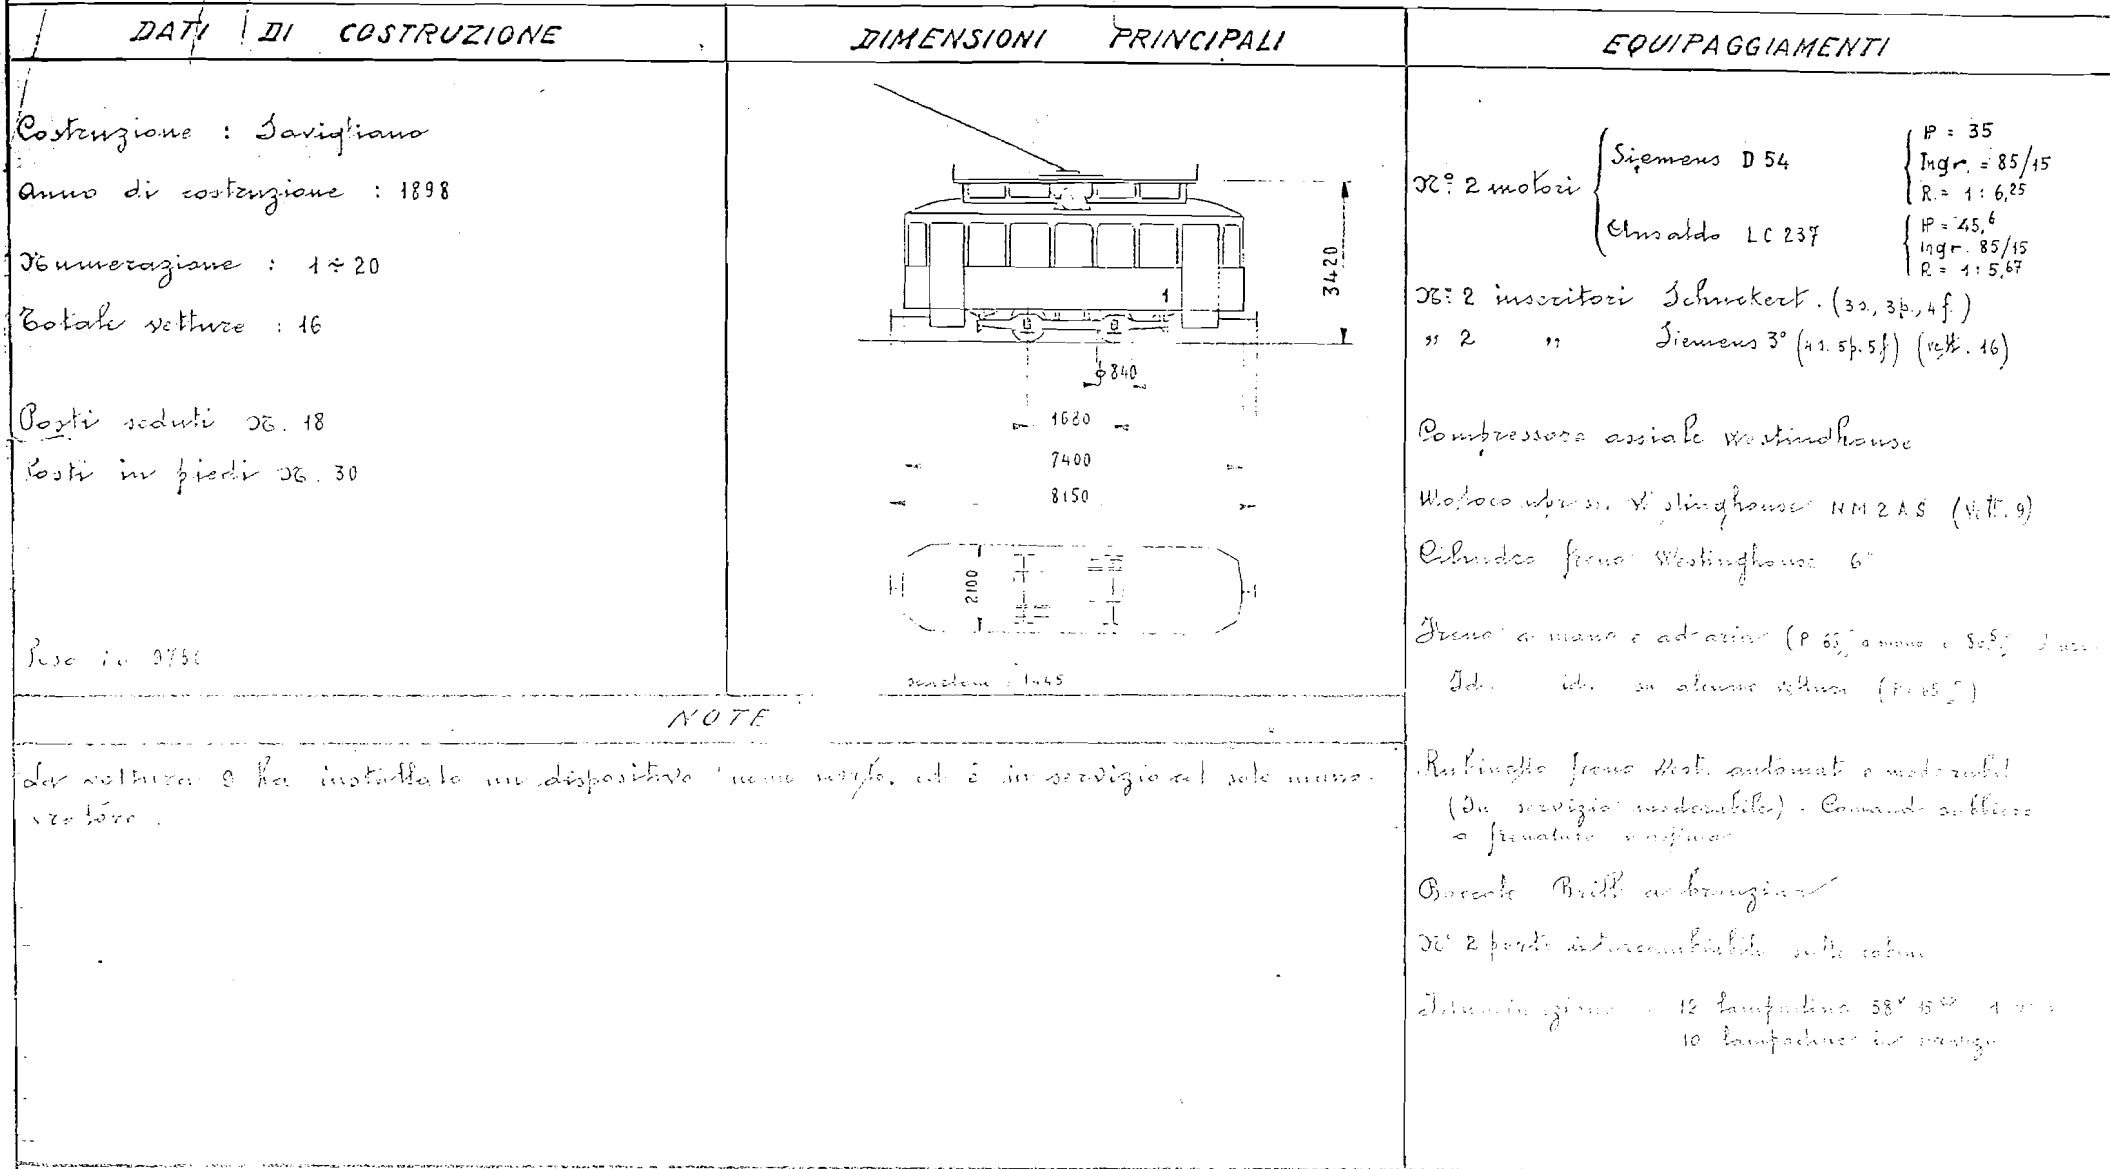 DATI DI COSTRUZIONE
Costruzione : Savigliano
Anno di costruzione : 1898
Numerazione : 1 ÷ 20
Totale vetture : 16
Posti seduti N. 18
Posti in piedi N. 30
Peso
DIMENSIONI PRINCIPALI
3420
1
ϕ 840
1680
7400
8150
2100
1445
EQUIPAGGIAMENTI
N° 2 motori
Siemens D 54
HP = 35
Ingr. = 85/15
R. = 1 : 6,25
Ansaldo LC 237
HP = 45,6
Ingr. 85/15
R = 1 : 5,67
N° 2 inseritori Schuckert. (3s., 3p., 4f.)
" 2 " Siemens 3° (4s. 5p. 5f) (vett. 16)
Compressore assiale Westindhouse
Westinghouse NM2AS (vett. 9)
Cilindro freno Westinghouse 6"
Freno a mano e ad aria
Id. id. su alcune vetture
Rubinetto freno West. automat. e moderabil
(In servizio moderabile) - Comando
a frenatura
Boccole Brill a bronzina
N° 2 porte intercambiabili
12 lampadine 58V
10 lampadine
NOTE
La vettura 9 ha installato un dispositivo uomo morto, ed è in servizio col solo mano-
vratore.